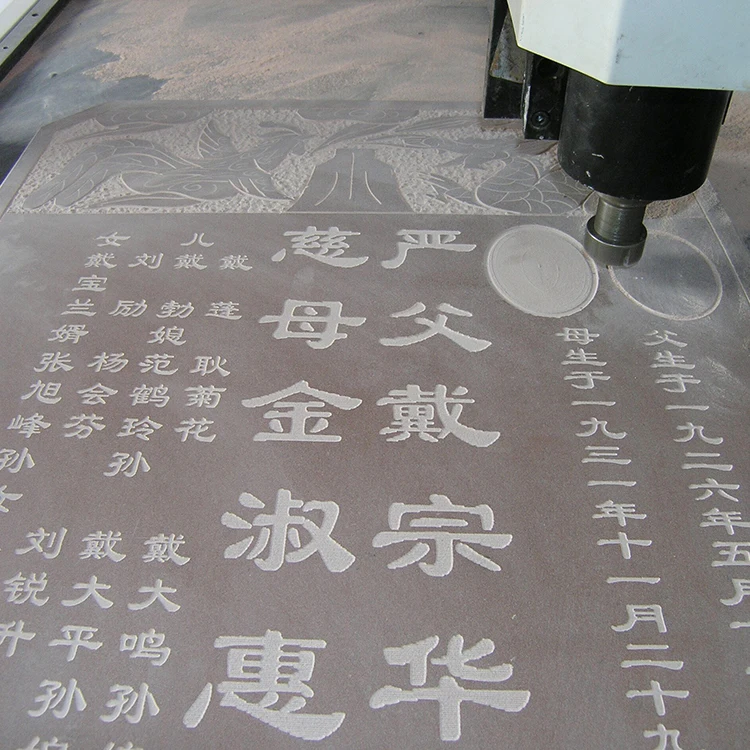 父生于一九二六年五月
母生于一九三一年十一月二十九
严父戴宗华
慈母金淑惠
戴蓬耿菊花戴大鸣孙
儿戴勃媳范鹤玲孙戴大平孙
刘励杨会芬刘锐升
女戴宝兰婿张旭峰孙女